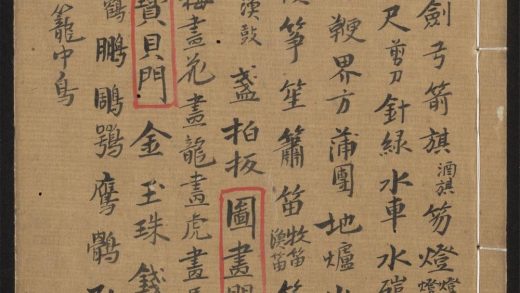 劍弓箭旗酒旗笏燈
尺剪刀針線水車水磑
鞭界方蒲團地爐
筝笙簫笛牧笛漁笛
漁鼓盞拍板圖畫門
梅畫花畫龍畫虎畫
寶貝門金玉珠錢
鶴鵬鵰鶚鷹鶻
籠中鳥